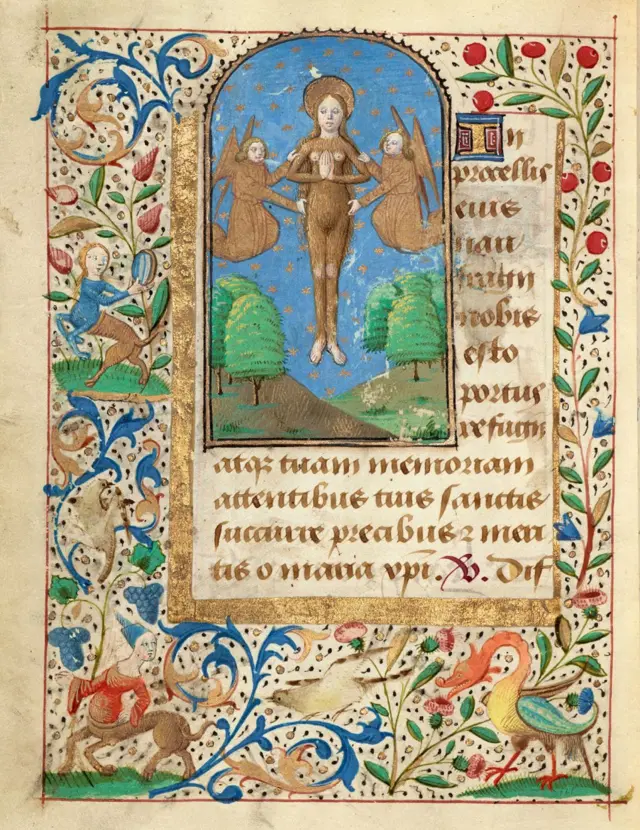 In
procellis
eius
nau
nobis
esto
portus
refugii
atqz tuam memoriam
attentibus tuis sanctis
succurre precibus ⁊ meri
tis o maria xpi. V. Dif